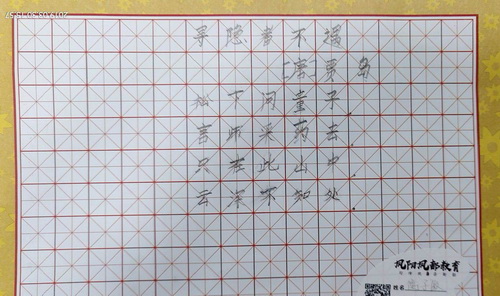 寻隐者不遇
[唐]贾岛
松下问童子
言师采药去
只在此山中
云深不知处
凤阳凤都教育
姓名